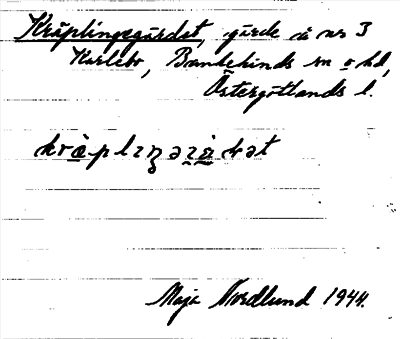 Kräplingsgärdet, gärde å nr 3
Karlebo, Bankekinds sn o hd,
Östergötlands l.
Maja Nordlund 1944.